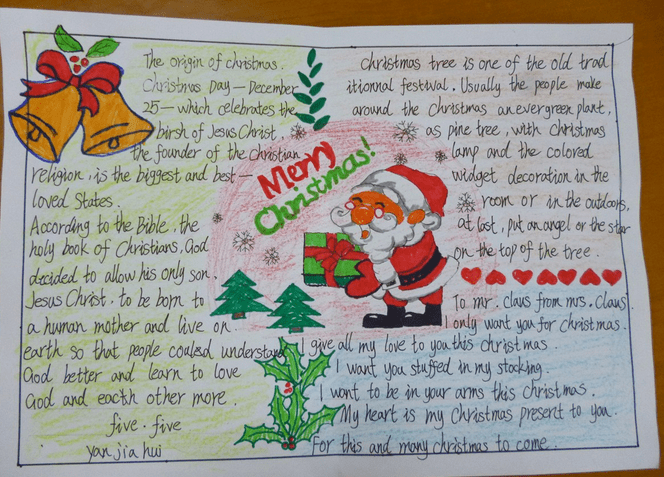 The origin of christmas.
Christmas Day — December
25 — which celebrates the
birsh of Jesus Christ,
the founder of the Christian
religion, is the biggest and best —
loved States.
According to the Bible, the
holy book of Christians, God
decided to allow his only son.
Jesus Christ. to be born to
a human mother and live on
earth so that people couled understand
God better and learn to love
God and eacth other more.
five. five
yan jia hui
Merry
Christmas!
christmas tree is one of the old trad
itionnal festival. Usually the people make
around the Christmas an evergreen plant,
as pine tree, with christmas
lamp and the colored
widget decoration in the
room or in the outdoors,
at last, put an angel or the star
on the top of the tree.
To mr. claus from mrs. Claus.
I only want you for christmas.
I give all my love to you this christmas.
I want you stuffed in my stocking.
I want to be in your arms this christmas.
My heart is my Christmas present to you.
for this and many christmas to come.